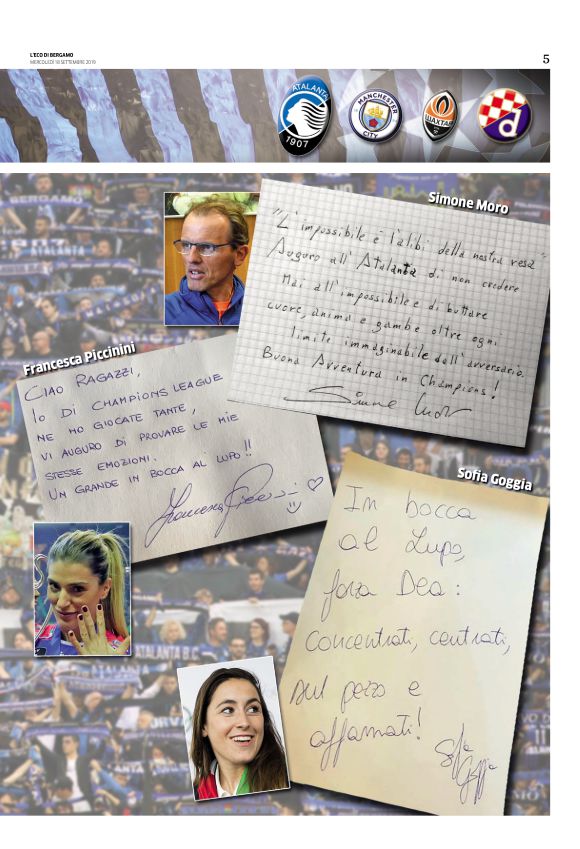 L'ECO DI BERGAMO
MERCOLEDÌ 18 SETTEMBRE 2019
5
ATALANTA
1907
MANCHESTER
CITY
ШАХТАР
d
BERGAMO
Simone Moro
"L'impossibile è l'alibi della nostra resa"
Auguro all'Atalanta di non credere
mai all'impossibile e di buttare
cuore, anima e gambe oltre ogni
limite immaginabile dell'avversario.
Buona Avventura in Champions!
Simone Moro
Francesca Piccinini
CIAO RAGAZZI,
IO DI CHAMPIONS LEAGUE
NE HO GIOCATE TANTE,
VI AUGURO DI PROVARE LE MIE
STESSE EMOZIONI.
UN GRANDE IN BOCCA AL LUPO!!
Sofia Goggia
In bocca
al Lupo,
forza Dea:
concentrati, centrati,
sul pezzo e
affamati!
Sofia
Goggia
ATALANTA B.C.